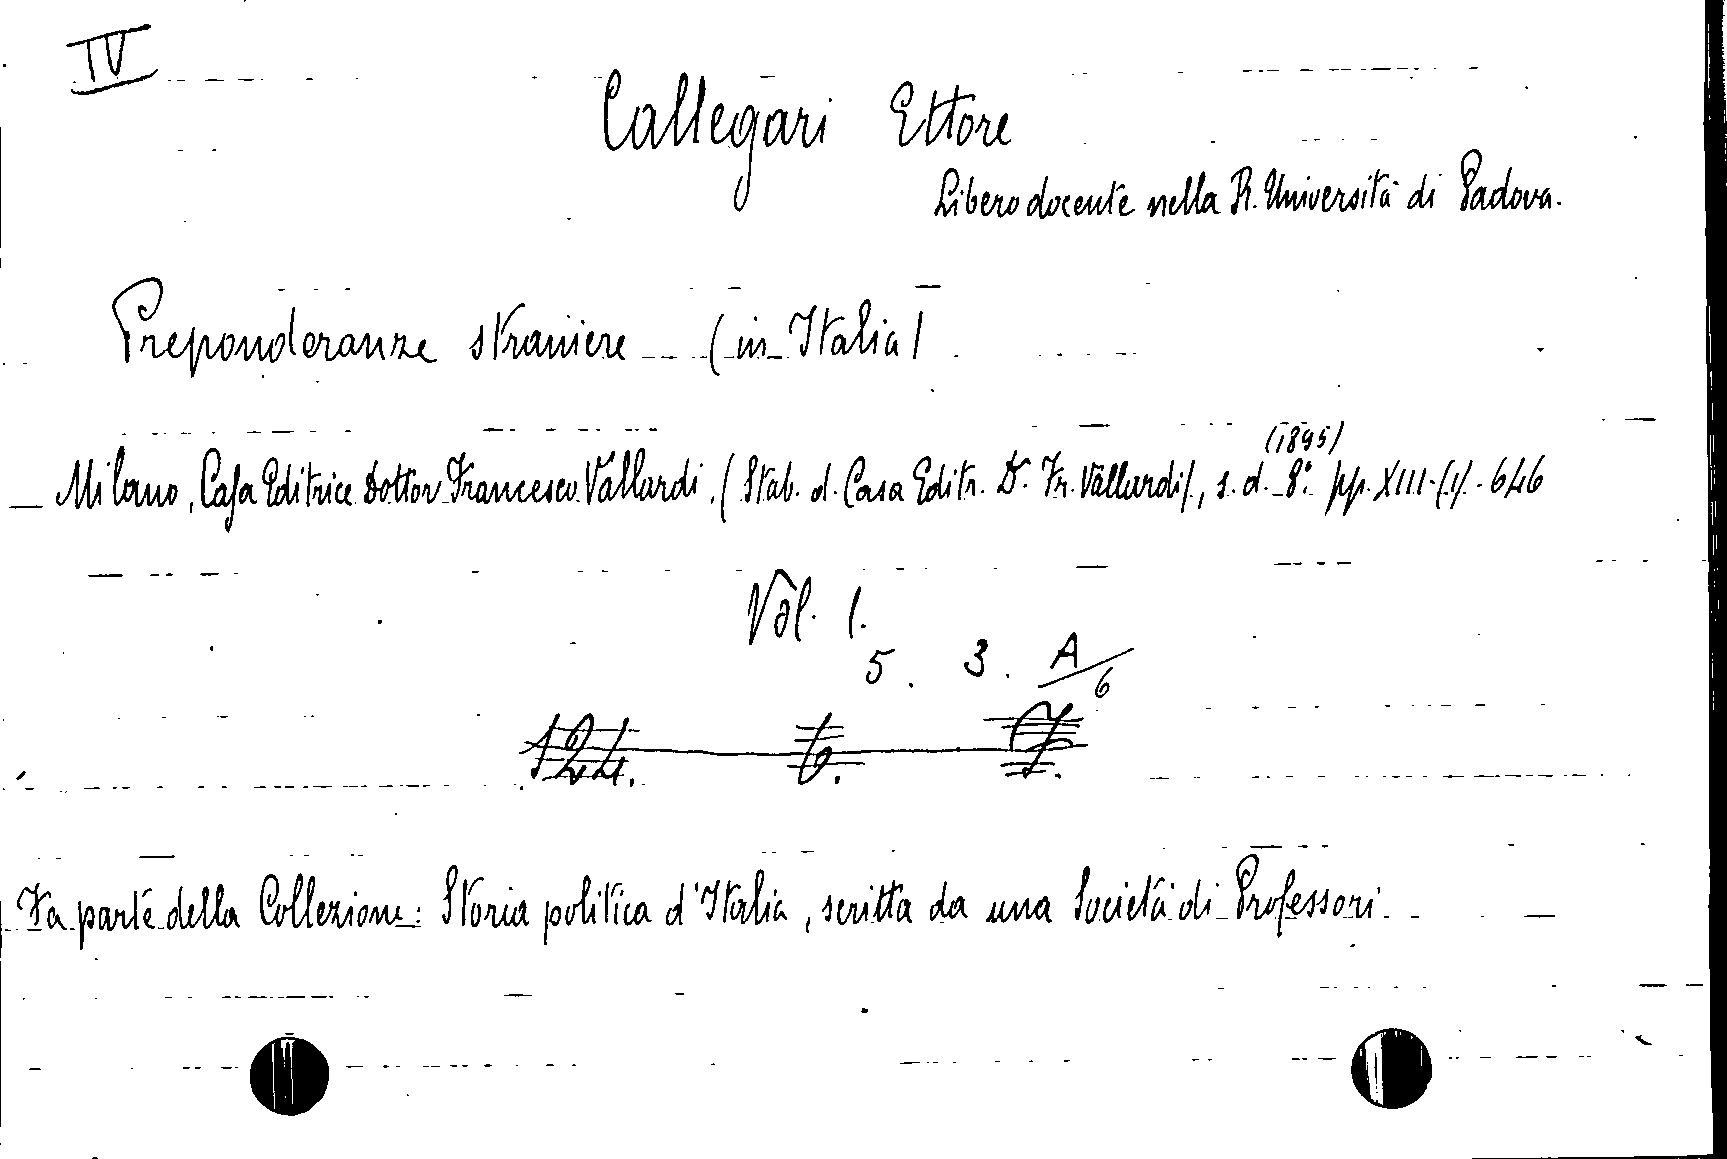 IV
Callegari Ettore
Libero docente nella R. Università di Padova.
Preponderanze straniere (in Italia)
(1895)
Milano, Casa Editrice Dottor Francesco Vallardi, (Stab. d. Casa Editr. D. Fr. Vallardi), s. d. 8° pp. XIII-(1)-646
Vol. 1.
5. 3. A/6
124. 6. F.
Fa parte della Collezione: Storia politica d'Italia, scritta da una Società di Professori.